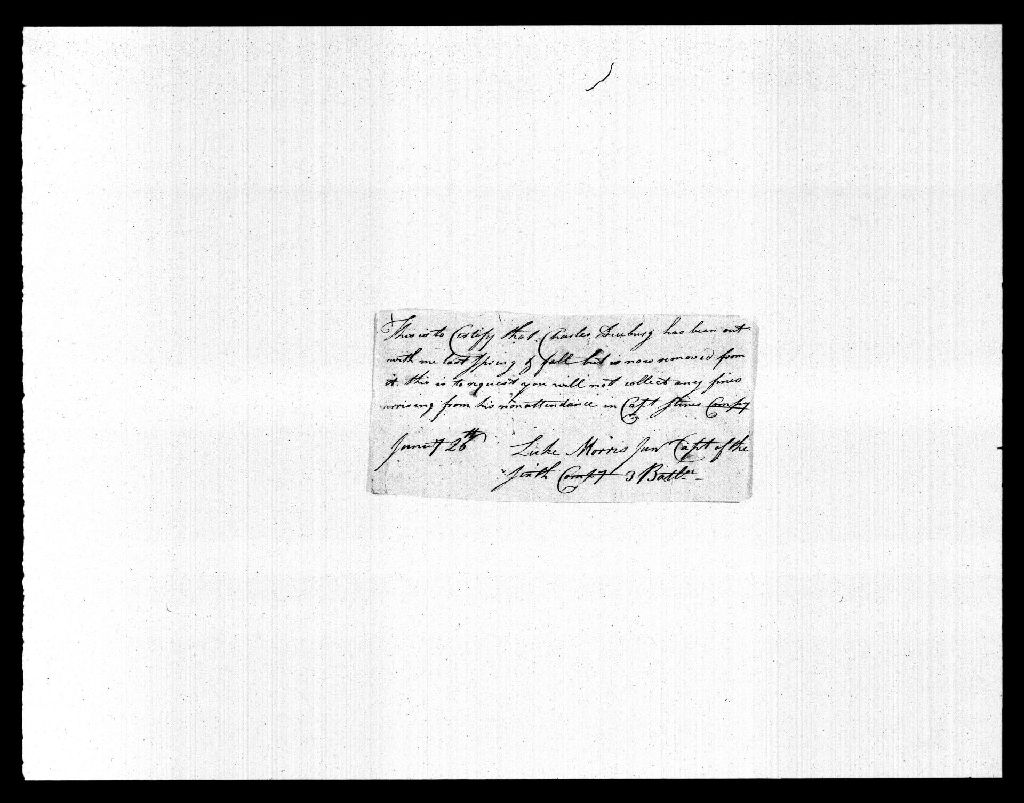 This is to Certify that Charles has been out
with me last Spring & fall but is now removed from
it. this is to request you will not collect any fines
arrising from his nonattendance in Capt Compy
26th Luke Morris Junr Capt of the
Sixth Compy 3 Battln